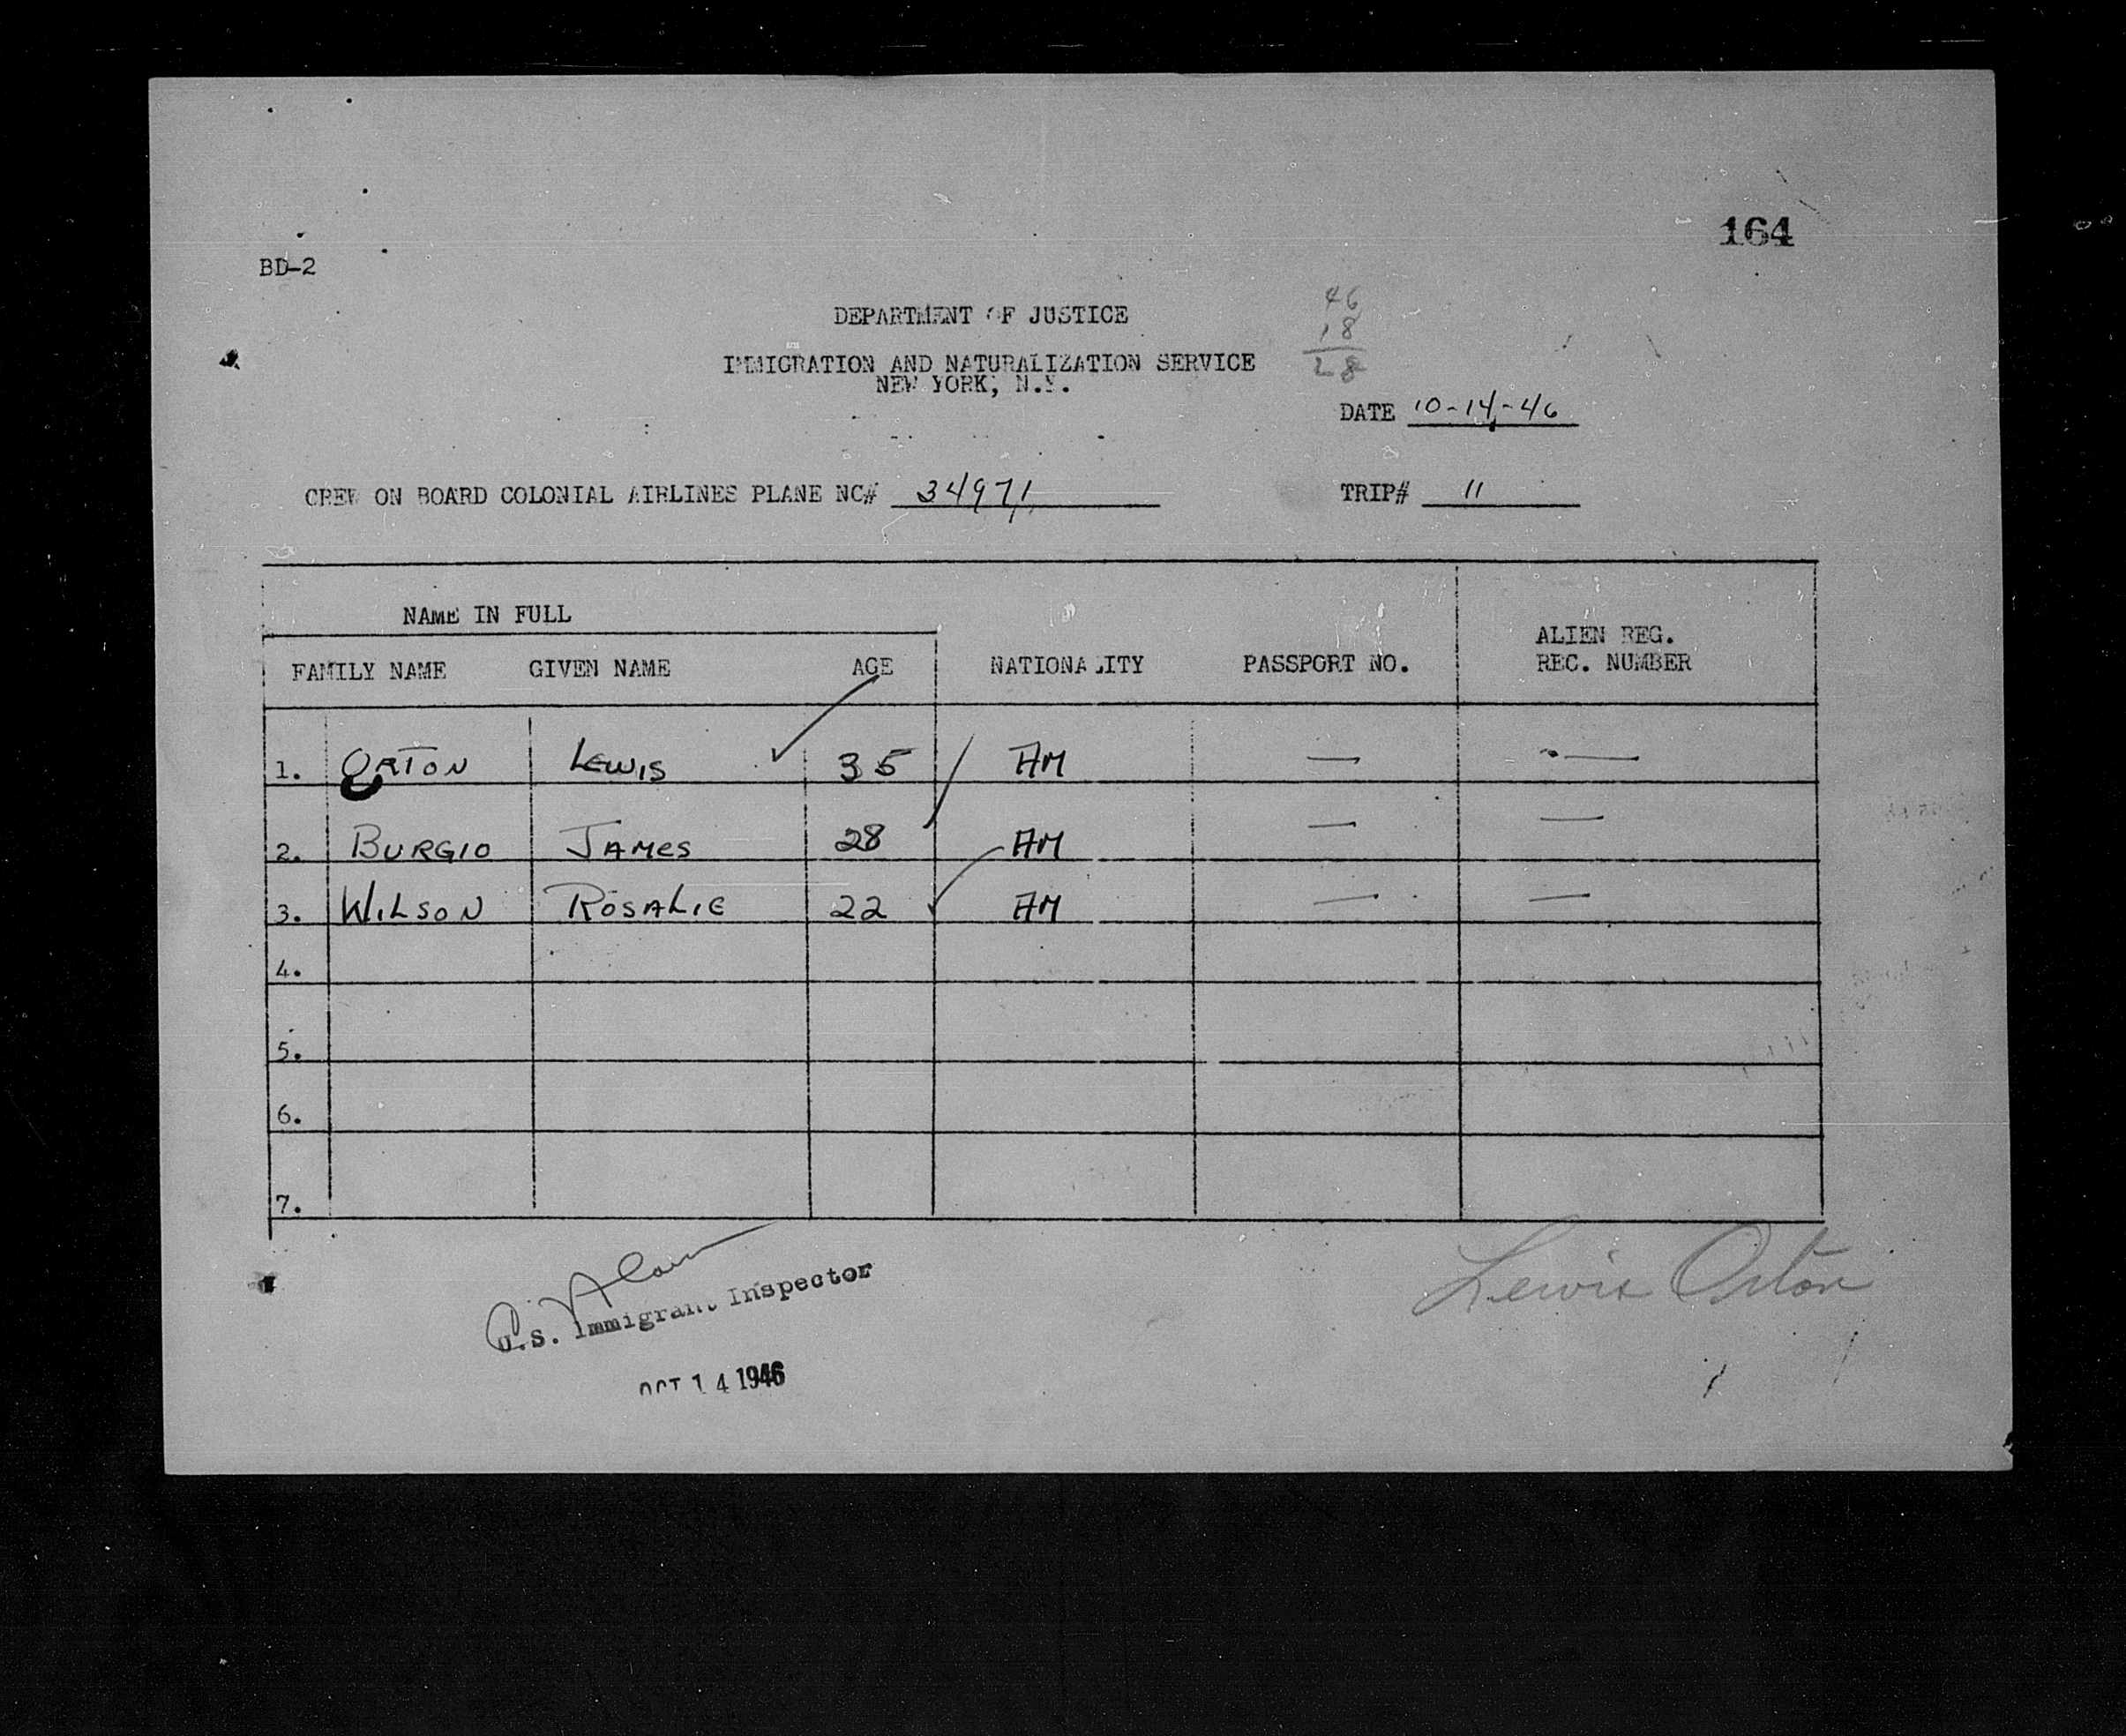 164
BD-2
DEPARTMENT OF JUSTICE
46
18
28
IMMIGRATION AND NATURALIZATION SERVICE
NEW YORK, N.Y.
DATE 10-14-46
CREW ON BOARD COLONIAL AIRLINES PLANE NC# 34971
TRIP# 11
NAME IN FULL
ALIEN REG.
FAMILY NAME GIVEN NAME AGE NATIONALITY PASSPORT NO. REC. NUMBER
1. ORTON LEWIS 35 AM — —
2. BURGIO JAMES 28 AM — —
3. WILSON ROSALIE 22 AM — —
4.
5.
6.
7.
U.S. Immigrant Inspector
Lewis Orton
OCT 14 1946